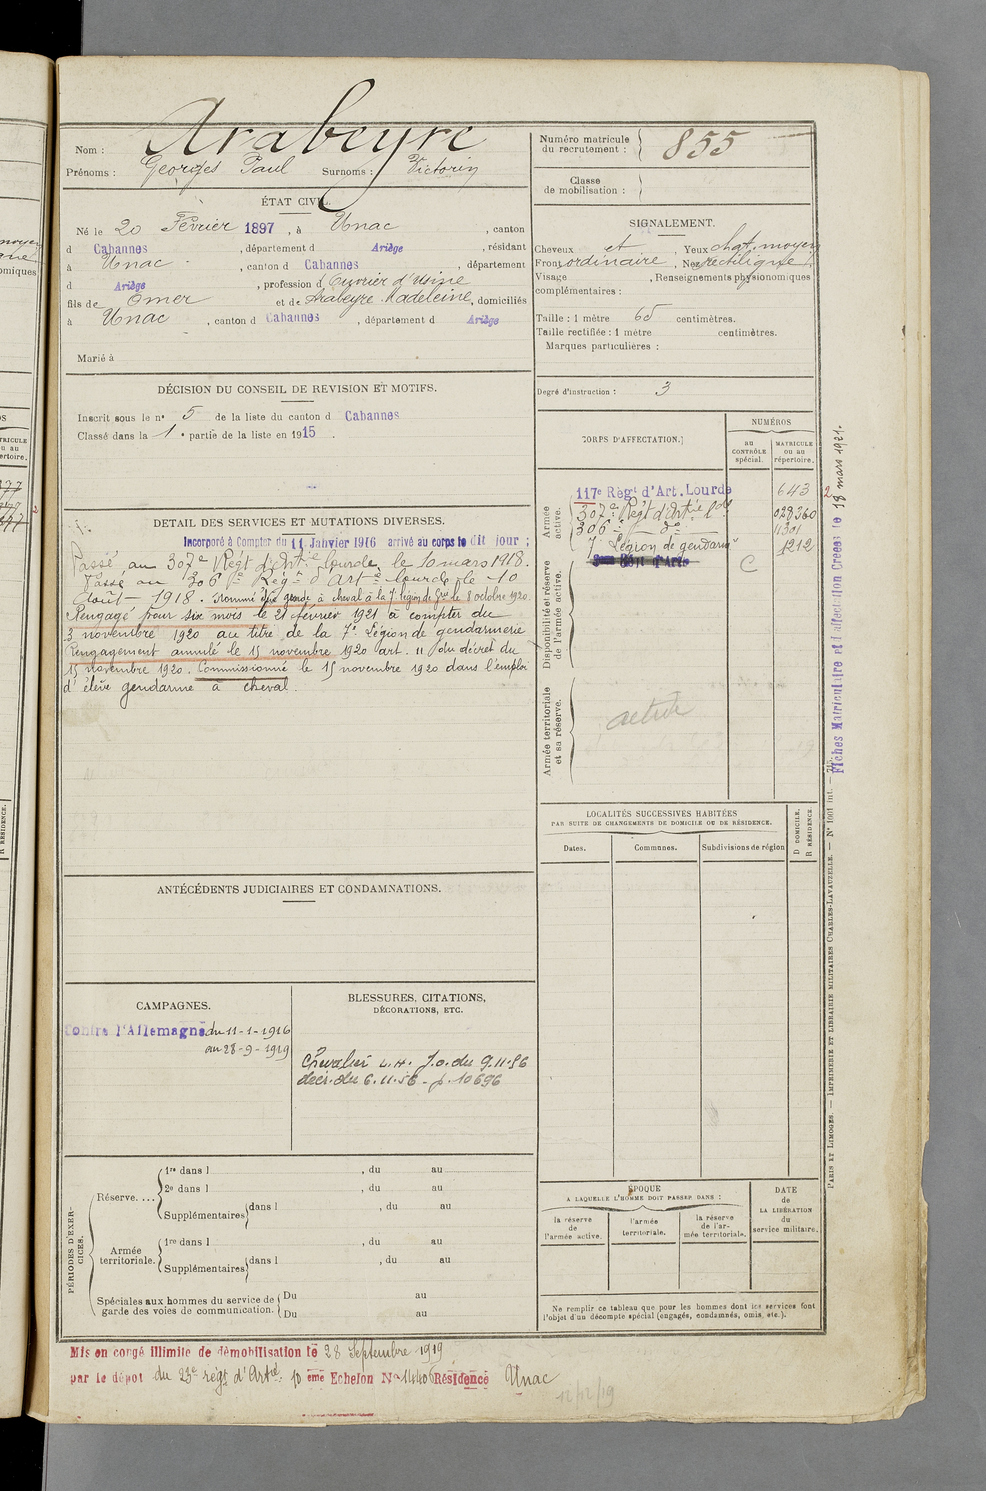 Nom : Arabeyre
Prénoms : Georges Paul Surnoms : Victorin
ÉTAT CIVIL.
Né le 20 Février 1897, à Unac, canton
d Cabannes, département d Ariège, résidant
à Unac, canton d Cabannes, département
d Ariège, profession d'Ouvrier d'Usine
fils de Omer et de Arabeyre Madeleine, domiciliés
à Unac, canton d Cabannes, département d Ariège
Marié à
DÉCISION DU CONSEIL DE REVISION ET MOTIFS.
Inscrit sous le n° 5 de la liste du canton d Cabannes
Classé dans la 1e partie de la liste en 1915.
DETAIL DES SERVICES ET MUTATIONS DIVERSES.
Incorporé à Compter du 11 Janvier 1916 arrivé au corps le dit jour ;
Passé au 307e Régt d'Artie lourde, le 10 mars 1918.
Passé au 306e Régt d'Artie lourde le 10
Août 1918. Nommé élève garde à cheval à la 7e légion de Grie le 8 octobre 1920
Rengagé pour six mois le 21 février 1921 à compter du
3 novembre 1920 au titre de la 7e Légion de gendarmerie
Rengagement annulé le 15 novembre 1920 art. 11 du décret du
15 novembre 1920. Commissionné le 15 novembre 1920 dans l'emploi
d'élève gendarme à cheval.
ANTÉCÉDENTS JUDICIAIRES ET CONDAMNATIONS.
CAMPAGNES.
Contre l'Allemagne du 11-1-1916
au 28-9-1919
BLESSURES, CITATIONS,
DÉCORATIONS, ETC.
Chevalier L.H. J.O. du 9.11.56
décr. du 6.11.56 - p. 10696
PÉRIODES D'EXERCICES.
Réserve....
1re dans l , du au
2e dans l , du au
Supplémentaires dans l , du au
Armée territoriale.
1re dans l , du au
Supplémentaires dans l , du au
Spéciales aux hommes du service de garde des voies de communication.
Du au
Du au
Mis en congé illimité de démobilisation le 28 Septembre 1919
par le dépôt du 23e régt d'Artie 10 eme Echelon N° 1440 Résidence Unac
12/12/19
Numéro matricule
du recrutement : 855
Classe
de mobilisation :
SIGNALEMENT.
Cheveux et, Yeux chat. moyen
Front ordinaire, Nez rectiligne
Visage , Renseignements physionomiques
complémentaires :
Taille : 1 mètre 65 centimètres.
Taille rectifiée : 1 mètre centimètres.
Marques particulières :
Degré d'instruction : 3
CORPS D'AFFECTATION.
NUMÉROS
AU CONTRÔLE spécial.
MATRICULE ou au répertoire.
Armée active.
117e Régt d'Art. Lourde 643
307e Régt d'Artie lde
306e — do —
7e Légion de gendarie 1212
Disponibilité et réserve de l'armée active.
C
Armée territoriale et sa réserve.
active
LOCALITÉS SUCCESSIVES HABITÉES
PAR SUITE DE CHANGEMENTS DE DOMICILE OU DE RÉSIDENCE.
Dates.
Communes.
Subdivisions de région
D DOMICILE.
R RÉSIDENCE.
ÉPOQUE
A LAQUELLE L'HOMME DOIT PASSER DANS :
la réserve de l'armée active.
l'armée territoriale.
la réserve de l'armée territoriale.
DATE
de
LA LIBÉRATION
du
service militaire.
Ne remplir ce tableau que pour les hommes dont les services font
l'objet d'un décompte spécial (engagés, condamnés, omis, etc.).
Fiches Matriculaire et d'affectation Créées le 18 mars 1921.
PARIS ET LIMOGES. — IMPRIMERIE ET LIBRAIRIE MILITAIRES CHARLES-LAVAUZELLE. — N° 1001 int.